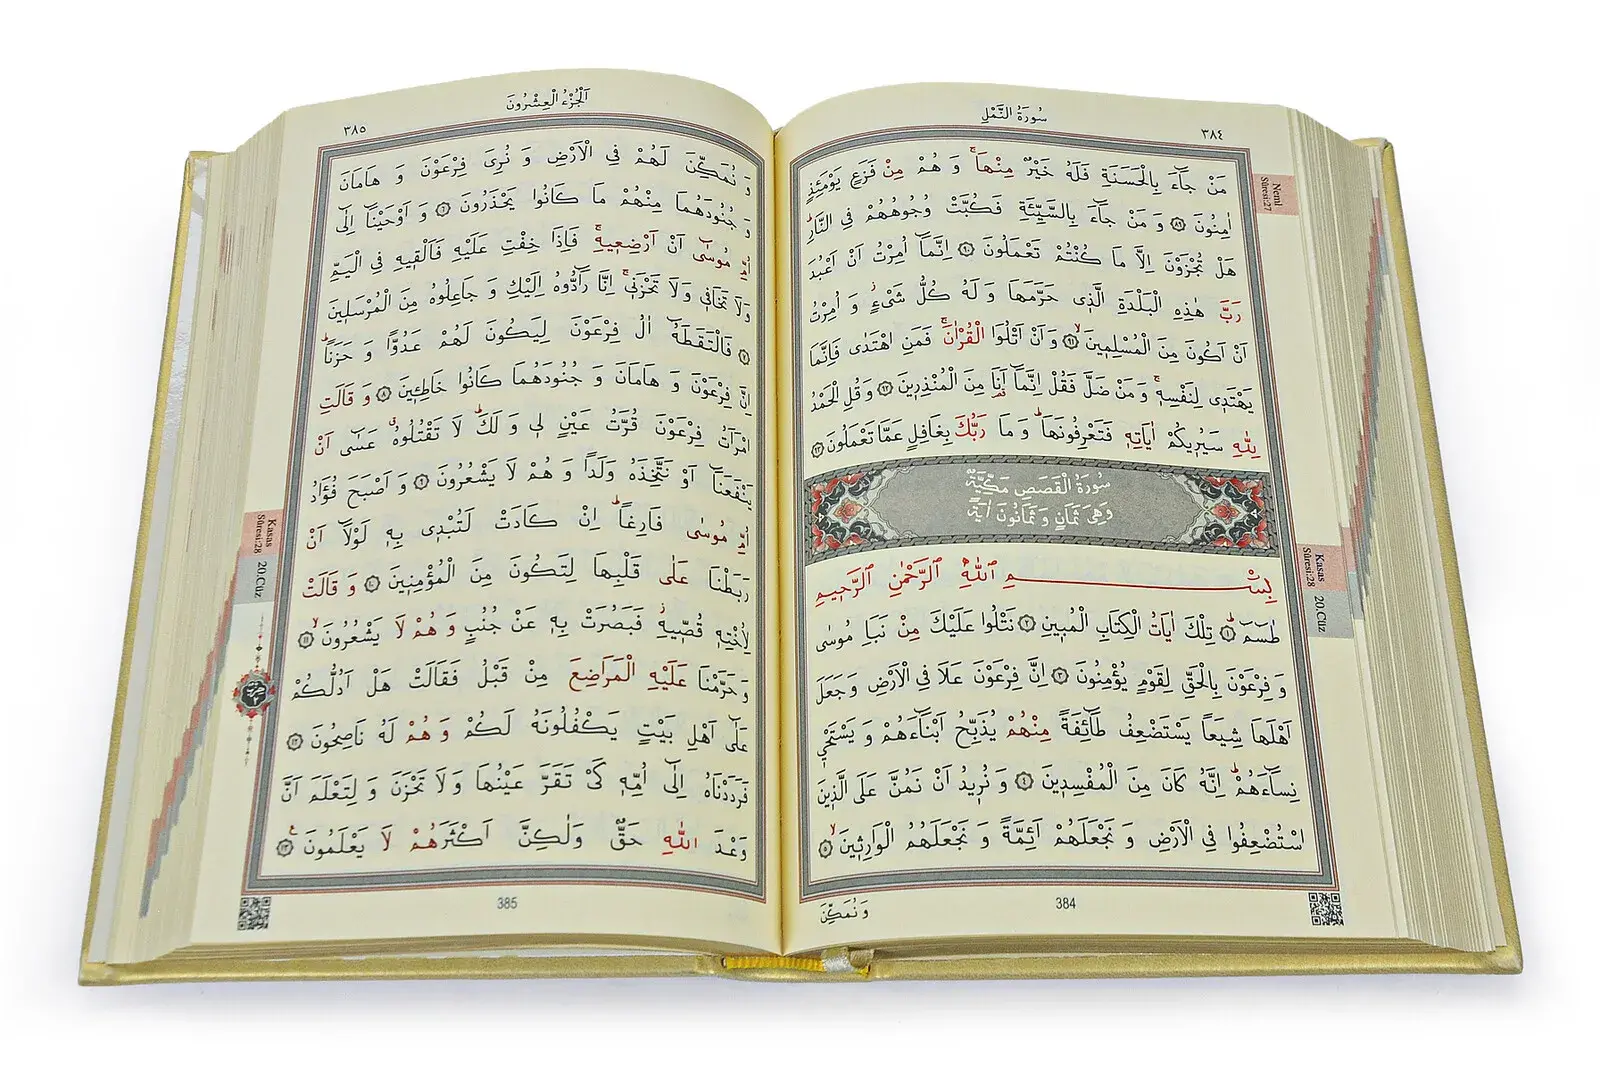 سُورَةُ النَّمْلِ
٣٨٤
مَنْ جَٓاءَ بِالْحَسَنَةِ فَلَهُ خَيْرٌ مِنْهَاۚ وَ هُمْ مِنْ فَزَعٍ يَوْمَئِذٍ
اٰمِنُونَ ﴿٨٩﴾ وَ مَنْ جَٓاءَ بِالسَّيِّئَةِ فَكُبَّتْ وُجُوهُهُمْ فِي النَّارِۜ
هَلْ تُجْزَوْنَ اِلَّا مَا كُنْتُمْ تَعْمَلُونَ ﴿٩٠﴾ اِنَّمَٓا اُمِرْتُ اَنْ اَعْبُدَ
رَبَّ هٰذِهِ الْبَلْدَةِ الَّذ۪ي حَرَّمَهَا وَ لَهُ كُلُّ شَيْءٍۘ وَ اُمِرْتُ
اَنْ اَكُونَ مِنَ الْمُسْلِم۪ينَۙ ﴿٩١﴾ وَ اَنْ اَتْلُوَا الْقُرْاٰنَۚ فَمَنِ اهْتَدٰى فَاِنَّمَا
يَهْتَد۪ي لِنَفْسِه۪ۚ وَ مَنْ ضَلَّ فَقُلْ اِنَّمَٓا اَنَا۬ مِنَ الْمُنْذِر۪ينَ ﴿٩٢﴾ وَ قُلِ الْحَمْدُ
لِلّٰهِ سَيُر۪يكُمْ اٰيَاتِه۪ فَتَعْرِفُونَهَاۜ وَ مَا رَبُّكَ بِغَافِلٍ عَمَّا تَعْمَلُونَ ﴿٩٣﴾
سُورَةُ الْقَصَصِ مَكِّيَّةٌ
وَهِيَ ثَمَانٍ وَ ثَمَانُونَ اٰيَةً
بِسْمِ اللّٰهِ الرَّحْمٰنِ الرَّح۪يمِ
طٰسٓمٓۜ ﴿١﴾ تِلْكَ اٰيَاتُ الْكِتَابِ الْمُب۪ينِ ﴿٢﴾ نَتْلُوا عَلَيْكَ مِنْ نَبَأِ مُوسٰى
وَ فِرْعَوْنَ بِالْحَقِّ لِقَوْمٍ يُؤْمِنُونَ ﴿٣﴾ اِنَّ فِرْعَوْنَ عَلَا فِي الْاَرْضِ وَ جَعَلَ
اَهْلَهَا شِيَعًا يَسْتَضْعِفُ طَٓائِفَةً مِنْهُمْ يُذَبِّحُ اَبْنَٓاءَهُمْ وَ يَسْتَحْي۪
نِسَٓاءَهُمْۜ اِنَّهُ كَانَ مِنَ الْمُفْسِد۪ينَ ﴿٤﴾ وَ نُر۪يدُ اَنْ نَمُنَّ عَلَى الَّذ۪ينَ
اسْتُضْعِفُوا فِي الْاَرْضِ وَ نَجْعَلَهُمْ اَئِمَّةً وَ نَجْعَلَهُمُ الْوَارِث۪ينَۙ ﴿٥﴾
384
وَ نُمَكِّنَ
Neml
Sûresi:27
Kasas
Sûresi:28
20.Cüz
اَلْجُزْءُ الْعِشْرُونَ
٣٨٥
وَ نُمَكِّنَ لَهُمْ فِي الْاَرْضِ وَ نُرِيَ فِرْعَوْنَ وَ هَامَانَ
وَ جُنُودَهُمَا مِنْهُمْ مَا كَانُوا يَحْذَرُونَ ﴿٦﴾ وَ اَوْحَيْنَٓا اِلٰٓى
اُمِّ مُوسٰٓى اَنْ اَرْضِع۪يهِۚ فَاِذَا خِفْتِ عَلَيْهِ فَاَلْق۪يهِ فِي الْيَمِّ
وَلَا تَخَاف۪ي وَلَا تَحْزَن۪يۚ اِنَّا رَٓادُّوهُ اِلَيْكِ وَ جَاعِلُوهُ مِنَ الْمُرْسَل۪ينَ
﴿٧﴾ فَالْتَقَطَهُٓ اٰلُ فِرْعَوْنَ لِيَكُونَ لَهُمْ عَدُوًّا وَ حَزَنًاۜ
اِنَّ فِرْعَوْنَ وَ هَامَانَ وَ جُنُودَهُمَا كَانُوا خَاطِـ۪ٔينَ ﴿٨﴾ وَ قَالَتِ
امْرَاَتُ فِرْعَوْنَ قُرَّتُ عَيْنٍ ل۪ي وَ لَكَۜ لَا تَقْتُلُوهُۗ عَسٰٓى اَنْ
يَنْفَعَنَٓا اَوْ نَتَّخِذَهُ وَلَدًا وَ هُمْ لَا يَشْعُرُونَ ﴿٩﴾ وَ اَصْبَحَ فُؤٰادُ
اُمِّ مُوسٰى فَارِغًاۜ اِنْ كَادَتْ لَتُبْد۪ي بِه۪ لَوْلَٓا اَنْ
رَبَطْنَا عَلٰى قَلْبِهَا لِتَكُونَ مِنَ الْمُؤْمِن۪ينَ ﴿١٠﴾ وَ قَالَتْ
لِاُخْتِه۪ قُصّ۪يهِۘ فَبَصُرَتْ بِه۪ عَنْ جُنُبٍ وَ هُمْ لَا يَشْعُرُونَۙ ﴿١١﴾
وَ حَرَّمْنَا عَلَيْهِ الْمَرَاضِعَ مِنْ قَبْلُ فَقَالَتْ هَلْ اَدُلُّكُمْ
عَلٰٓى اَهْلِ بَيْتٍ يَكْفُلُونَهُ لَكُمْ وَ هُمْ لَهُ نَاصِحُونَ ﴿١٢﴾
فَرَدَدْنَاهُ اِلٰٓى اُمِّه۪ كَيْ تَقَرَّ عَيْنُهَا وَ لَا تَحْزَنَ وَ لِتَعْلَمَ اَنَّ
وَعْدَ اللّٰهِ حَقٌّ وَلٰكِنَّ اَكْثَرَهُمْ لَا يَعْلَمُونَ۟ ﴿١٣﴾
385
Kasas
Sûresi:28
20.Cüz